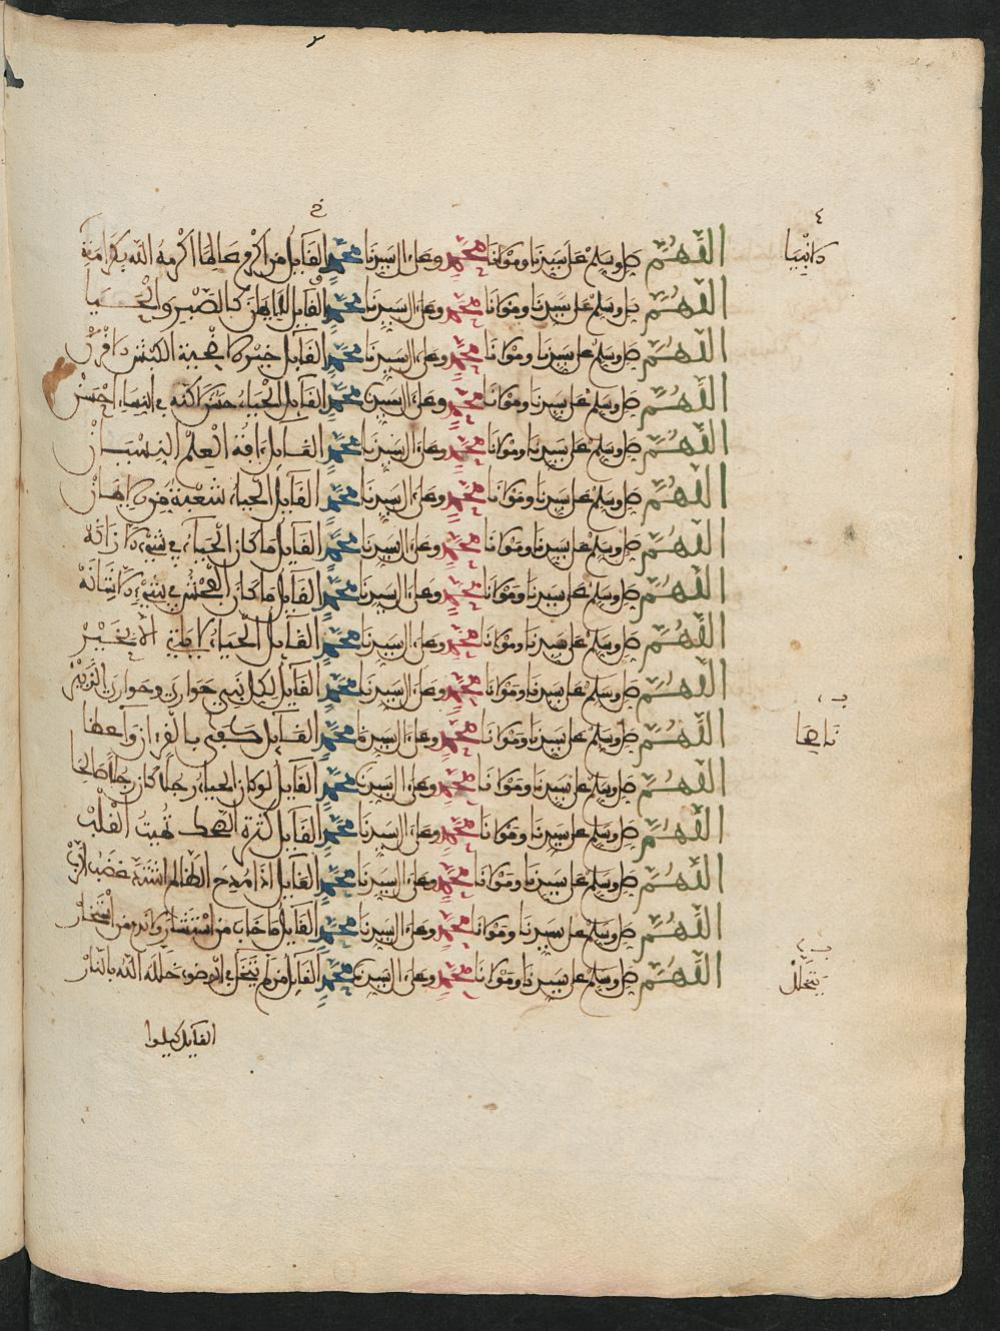 اللهم صل وسلم على سيدنا ومولانا محمد وعلى ءال سيدنا محمد القايل من اكرم عالما اكرمه الله بكرامته
اللهم صل وسلم على سيدنا ومولانا محمد وعلى ءال سيدنا محمد القايل الايمان كالصبر والحيا
اللهم صل وسلم على سيدنا ومولانا محمد وعلى ءال سيدنا محمد القايل خير الاضحية الكبش الاقرن
اللهم صل وسلم على سيدنا ومولانا محمد وعلى ءال سيدنا محمد القايل الحياء حسن لكنه في النساء احسن
اللهم صل وسلم على سيدنا ومولانا محمد وعلى ءال سيدنا محمد القايل ءافة العلم النسيان
اللهم صل وسلم على سيدنا ومولانا محمد وعلى ءال سيدنا محمد القايل الحياء شعبة من الايمان
اللهم صل وسلم على سيدنا ومولانا محمد وعلى ءال سيدنا محمد القايل ما كان الحياء في شيء الا زانه
اللهم صل وسلم على سيدنا ومولانا محمد وعلى ءال سيدنا محمد القايل ما كان الفحش في شيء الا شانه
اللهم صل وسلم على سيدنا ومولانا محمد وعلى ءال سيدنا محمد القايل الحياء لا ياتي الا بخير
اللهم صل وسلم على سيدنا ومولانا محمد وعلى ءال سيدنا محمد القايل لكل نبي حواري وحواري الزبير
اللهم صل وسلم على سيدنا ومولانا محمد وعلى ءال سيدنا محمد القايل كفى بالقرءان واعظا
اللهم صل وسلم على سيدنا ومولانا محمد وعلى ءال سيدنا محمد القايل لو كان الحياء رجلا كان رجلا صالحا
اللهم صل وسلم على سيدنا ومولانا محمد وعلى ءال سيدنا محمد القايل كثرة الضحك تميت القلب
اللهم صل وسلم على سيدنا ومولانا محمد وعلى ءال سيدنا محمد القايل اذا مدح الظالم اشتد غضب الرب
اللهم صل وسلم على سيدنا ومولانا محمد وعلى ءال سيدنا محمد القايل ما خاب من استشار ولا ندم من استخار
اللهم صل وسلم على سيدنا ومولانا محمد وعلى ءال سيدنا محمد القايل من لم يتخلل في الوضوء خلله الله بالنار
القايل كيلوا
يتخلل